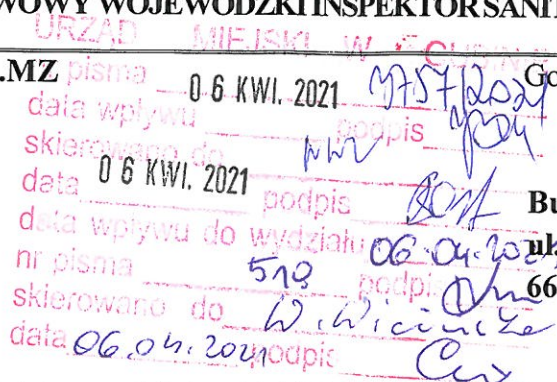 WOWY WOJEWÓDZKI INSPEKTOR SANIT
URZĄD MIEJSKI W GUBINIE
.MZ nr pisma 0 6 KWI. 2021 Go
data wpływu podpis
skierowano do
data 0 6 KWI. 2021 podpis Bu
data wpływu do wydziału 06.04.2021 ul.
nr pisma 519 podpis 66
skierowano do
data 06.04.2021 podpis